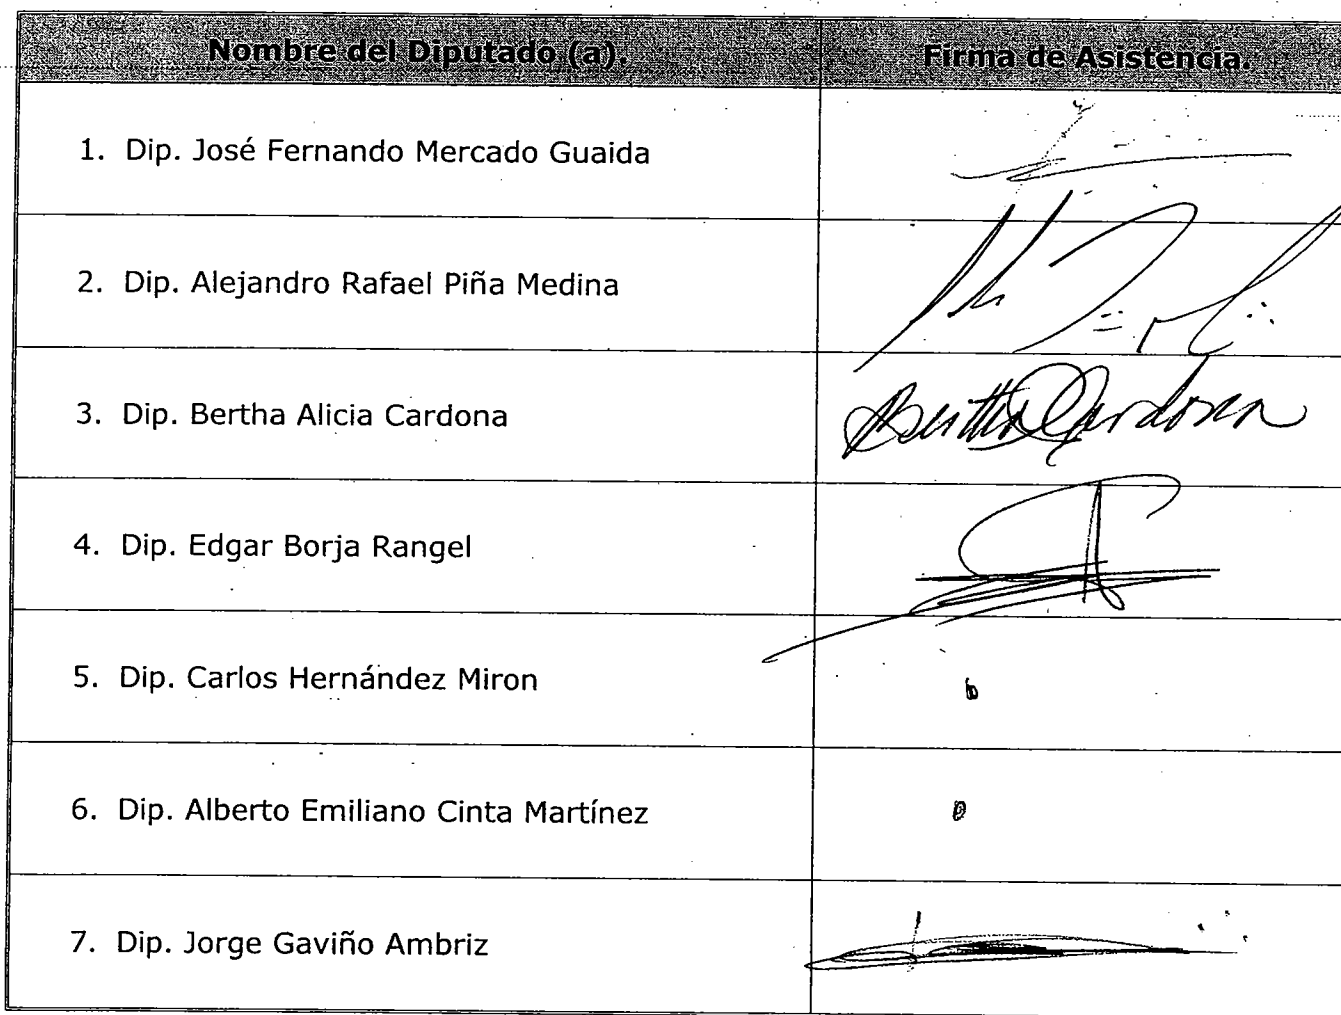 Nombre del Diputado (a). Firma de Asistencia.
1. Dip. José Fernando Mercado Guaida
2. Dip. Alejandro Rafael Piña Medina
3. Dip. Bertha Alicia Cardona Bertha Cardona
4. Dip. Edgar Borja Rangel
5. Dip. Carlos Hernández Miron
6. Dip. Alberto Emiliano Cinta Martínez
7. Dip. Jorge Gaviño Ambriz